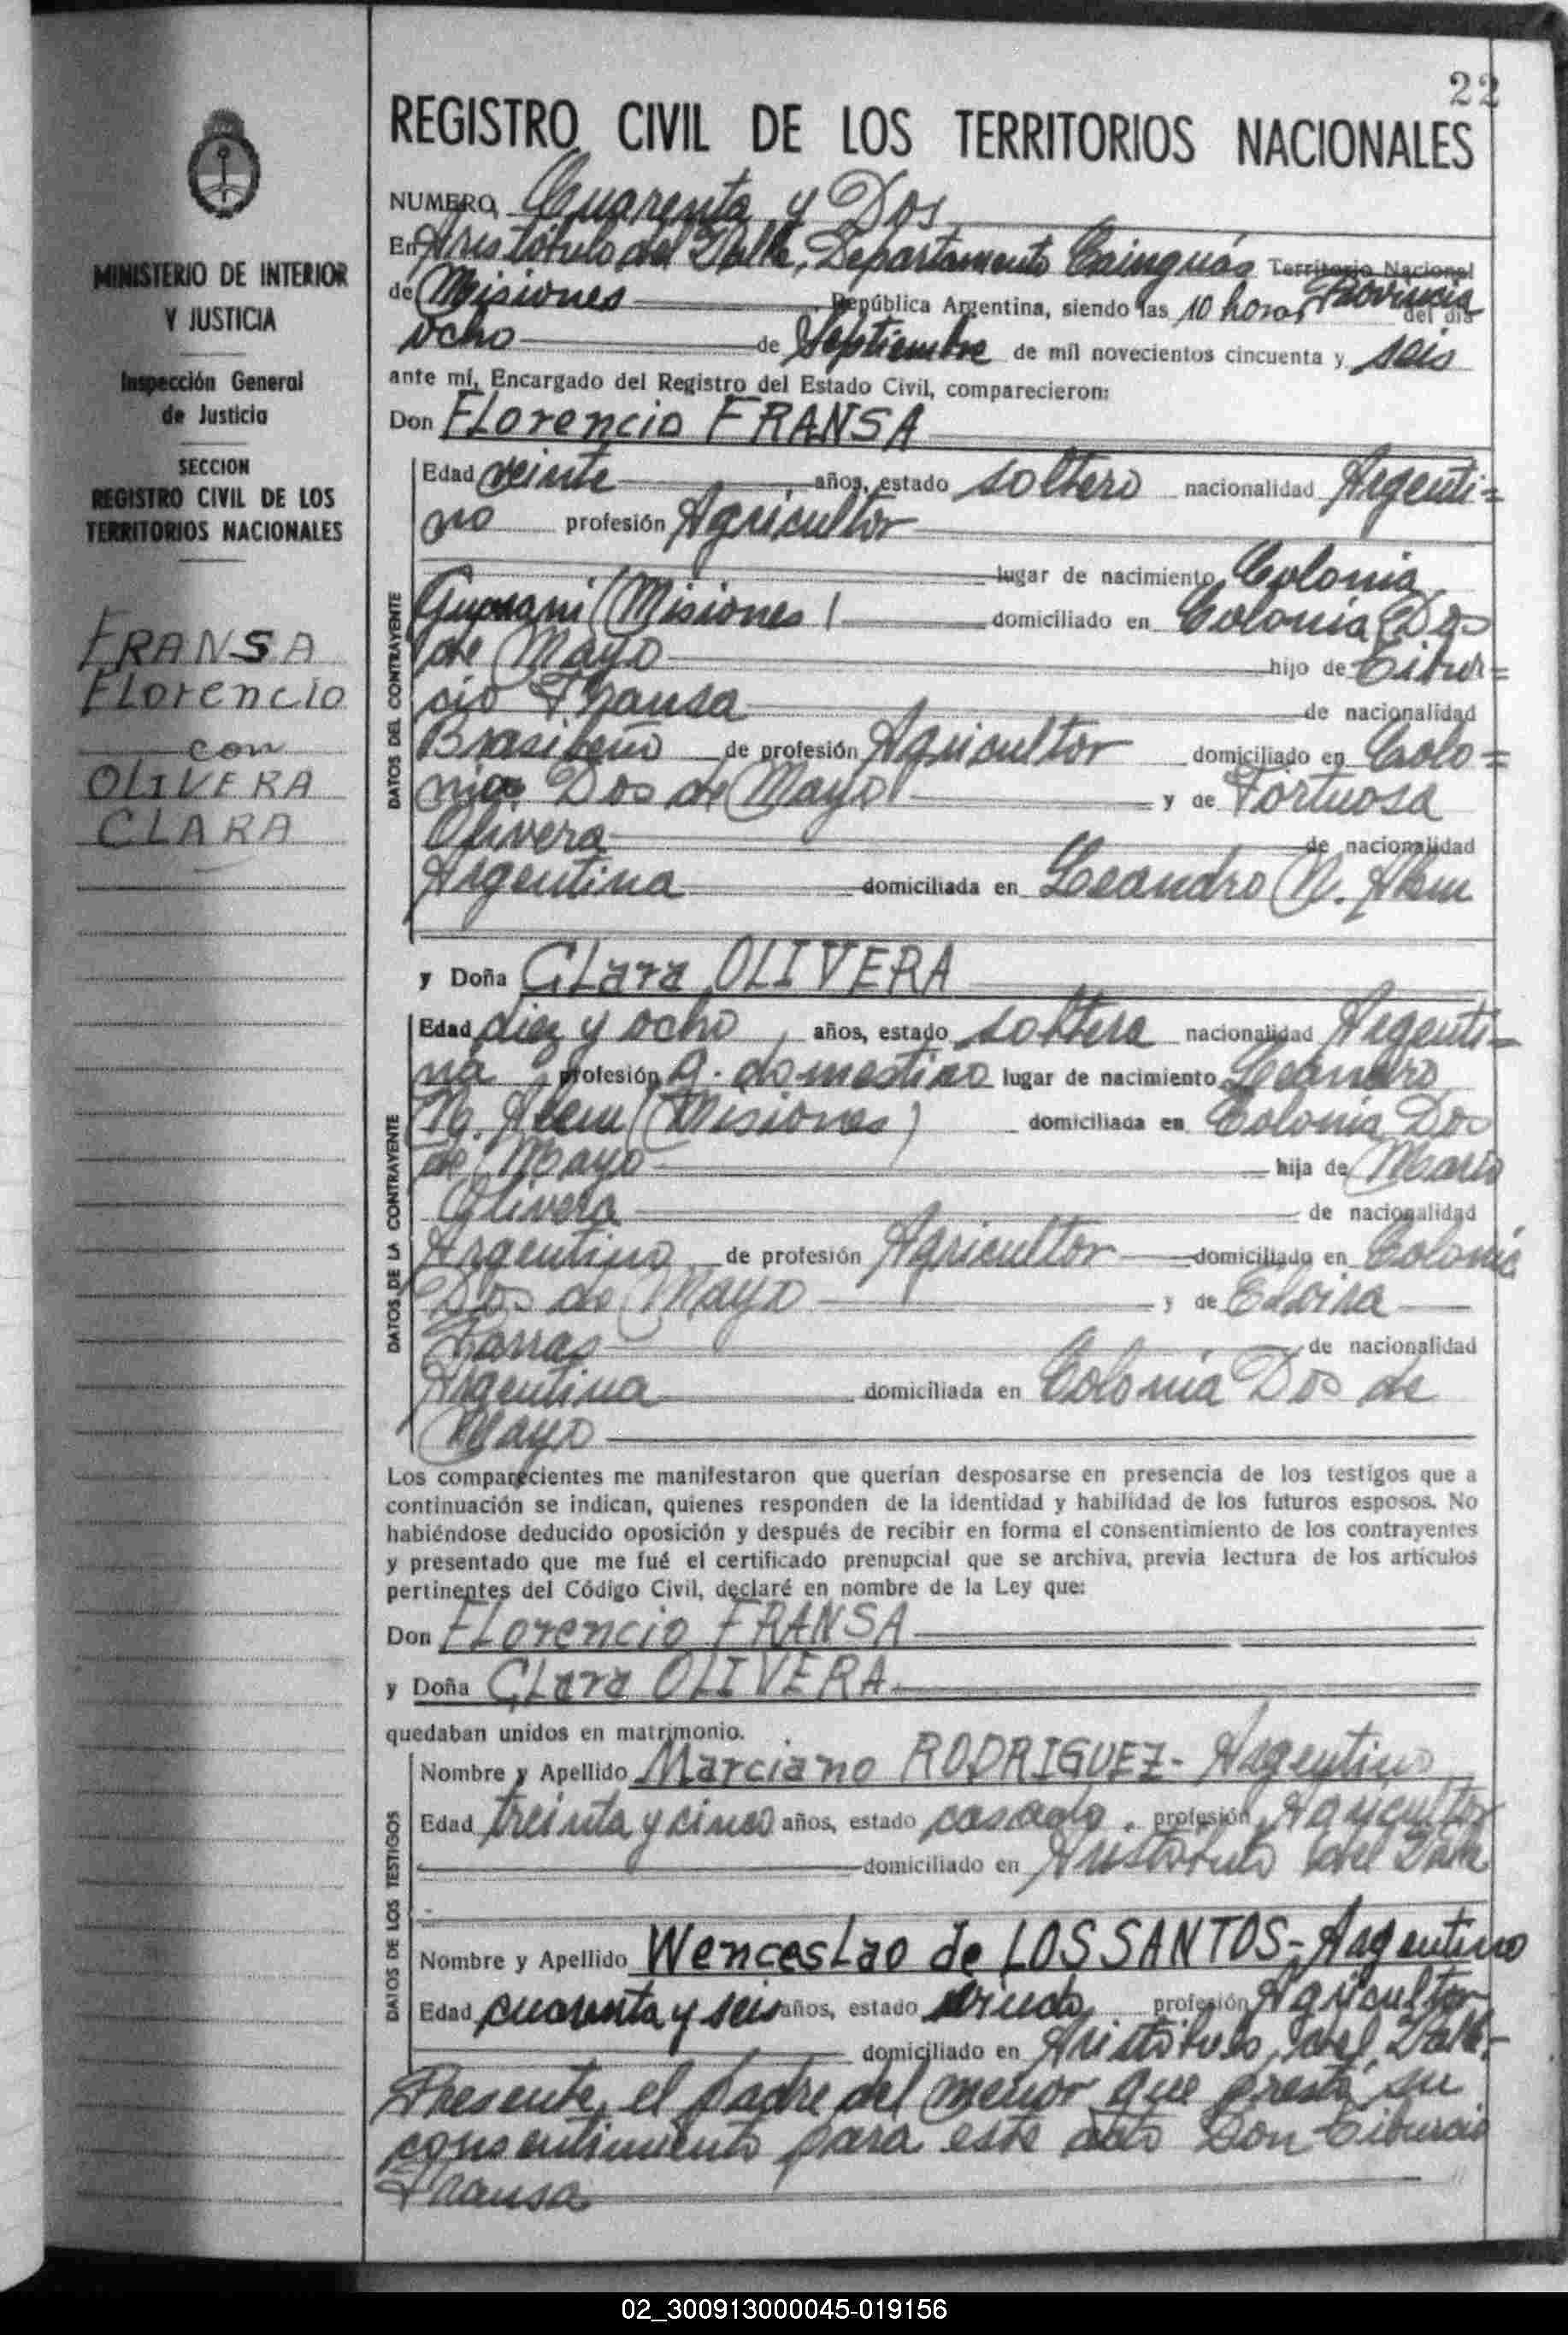 22
REGISTRO CIVIL DE LOS TERRITORIOS NACIONALES
MINISTERIO DE INTERIOR
Y JUSTICIA
Inspección General
de Justicia
SECCION
REGISTRO CIVIL DE LOS
TERRITORIOS NACIONALES
FRANSA
Florencio
con
OLIVERA
CLARA
NUMERO Cuarenta y Dos
En Aristóbulo del Valle, Departamento Cainguás Territorio Nacional Provincia
de Misiones República Argentina, siendo las 10 horas del día
ocho de Septiembre de mil novecientos cincuenta y seis
ante mí, Encargado del Registro del Estado Civil, comparecieron:
Don Florencio FRANSA
DATOS DEL CONTRAYENTE
Edad veinte años, estado soltero nacionalidad Argenti=
no profesión Agricultor
lugar de nacimiento Colonia
Guarani (Misiones) domiciliado en Colonia Dos
de Mayo hijo de Tibur=
cio Fransa de nacionalidad
Brasileño de profesión Agricultor domiciliado en Colo=
nia Dos de Mayo y de Fortuosa
Olivera de nacionalidad
Argentina domiciliada en Leandro N. Alem
y Doña Clara OLIVERA
DATOS DE LA CONTRAYENTE
Edad diez y ocho, años, estado soltera nacionalidad Argenti=
na profesión q. domestico lugar de nacimiento Leandro
N. Alem (Misiones) domiciliada en Colonia Dos
de Mayo hija de Mario
Olivera de nacionalidad
Argentino de profesión Agricultor domiciliado en Colonia
Dos de Mayo y de
de nacionalidad
Argentina domiciliada en Colonia Dos de
Mayo
Los comparecientes me manifestaron que querían desposarse en presencia de los testigos que a
continuación se indican, quienes responden de la identidad y habilidad de los futuros esposos. No
habiéndose deducido oposición y después de recibir en forma el consentimiento de los contrayentes
y presentado que me fué el certificado prenupcial que se archiva, previa lectura de los artículos
pertinentes del Código Civil, declaré en nombre de la Ley que:
Don Florencio FRANSA
y Doña Clara OLIVERA
quedaban unidos en matrimonio.
DATOS DE LOS TESTIGOS
Nombre y Apellido Marciano RODRIGUEZ- Argentino
Edad treinta y cinco años, estado casado. profesión Agricultor
domiciliado en Aristóbulo del Valle
Nombre y Apellido Wenceslao de LOS SANTOS- Argentino
Edad cuarenta y seis años, estado viudo profesión Agricultor
domiciliado en Aristóbulo del Valle.
Presente, el padre del menor que presta su
consentimiento para este acto Don Tiburcio
Fransa
02_300913000045-019156